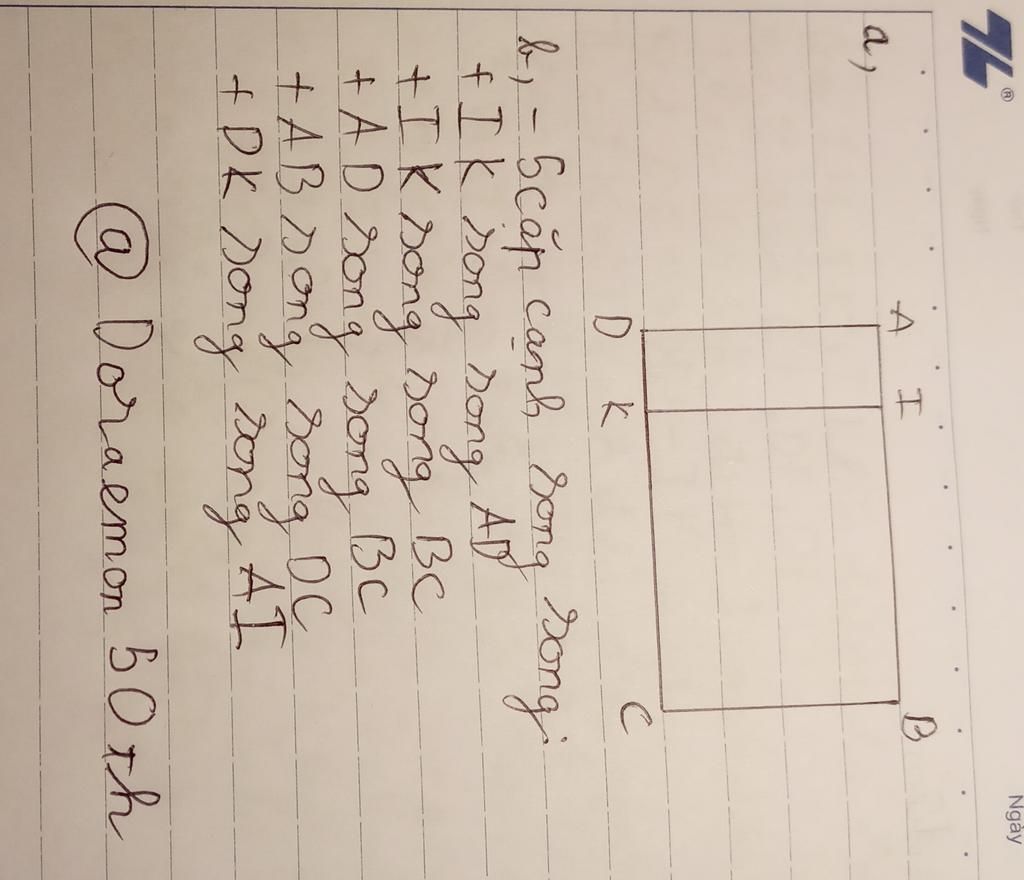 TL®
Ngày
a,
A I B
D K C
b, - 5 cặp cạnh song song:
+ IK song song AD
+ IK song song BC
+ AD song song BC
+ AB song song DC
+ DK song song AI
@ Doraemon 50th